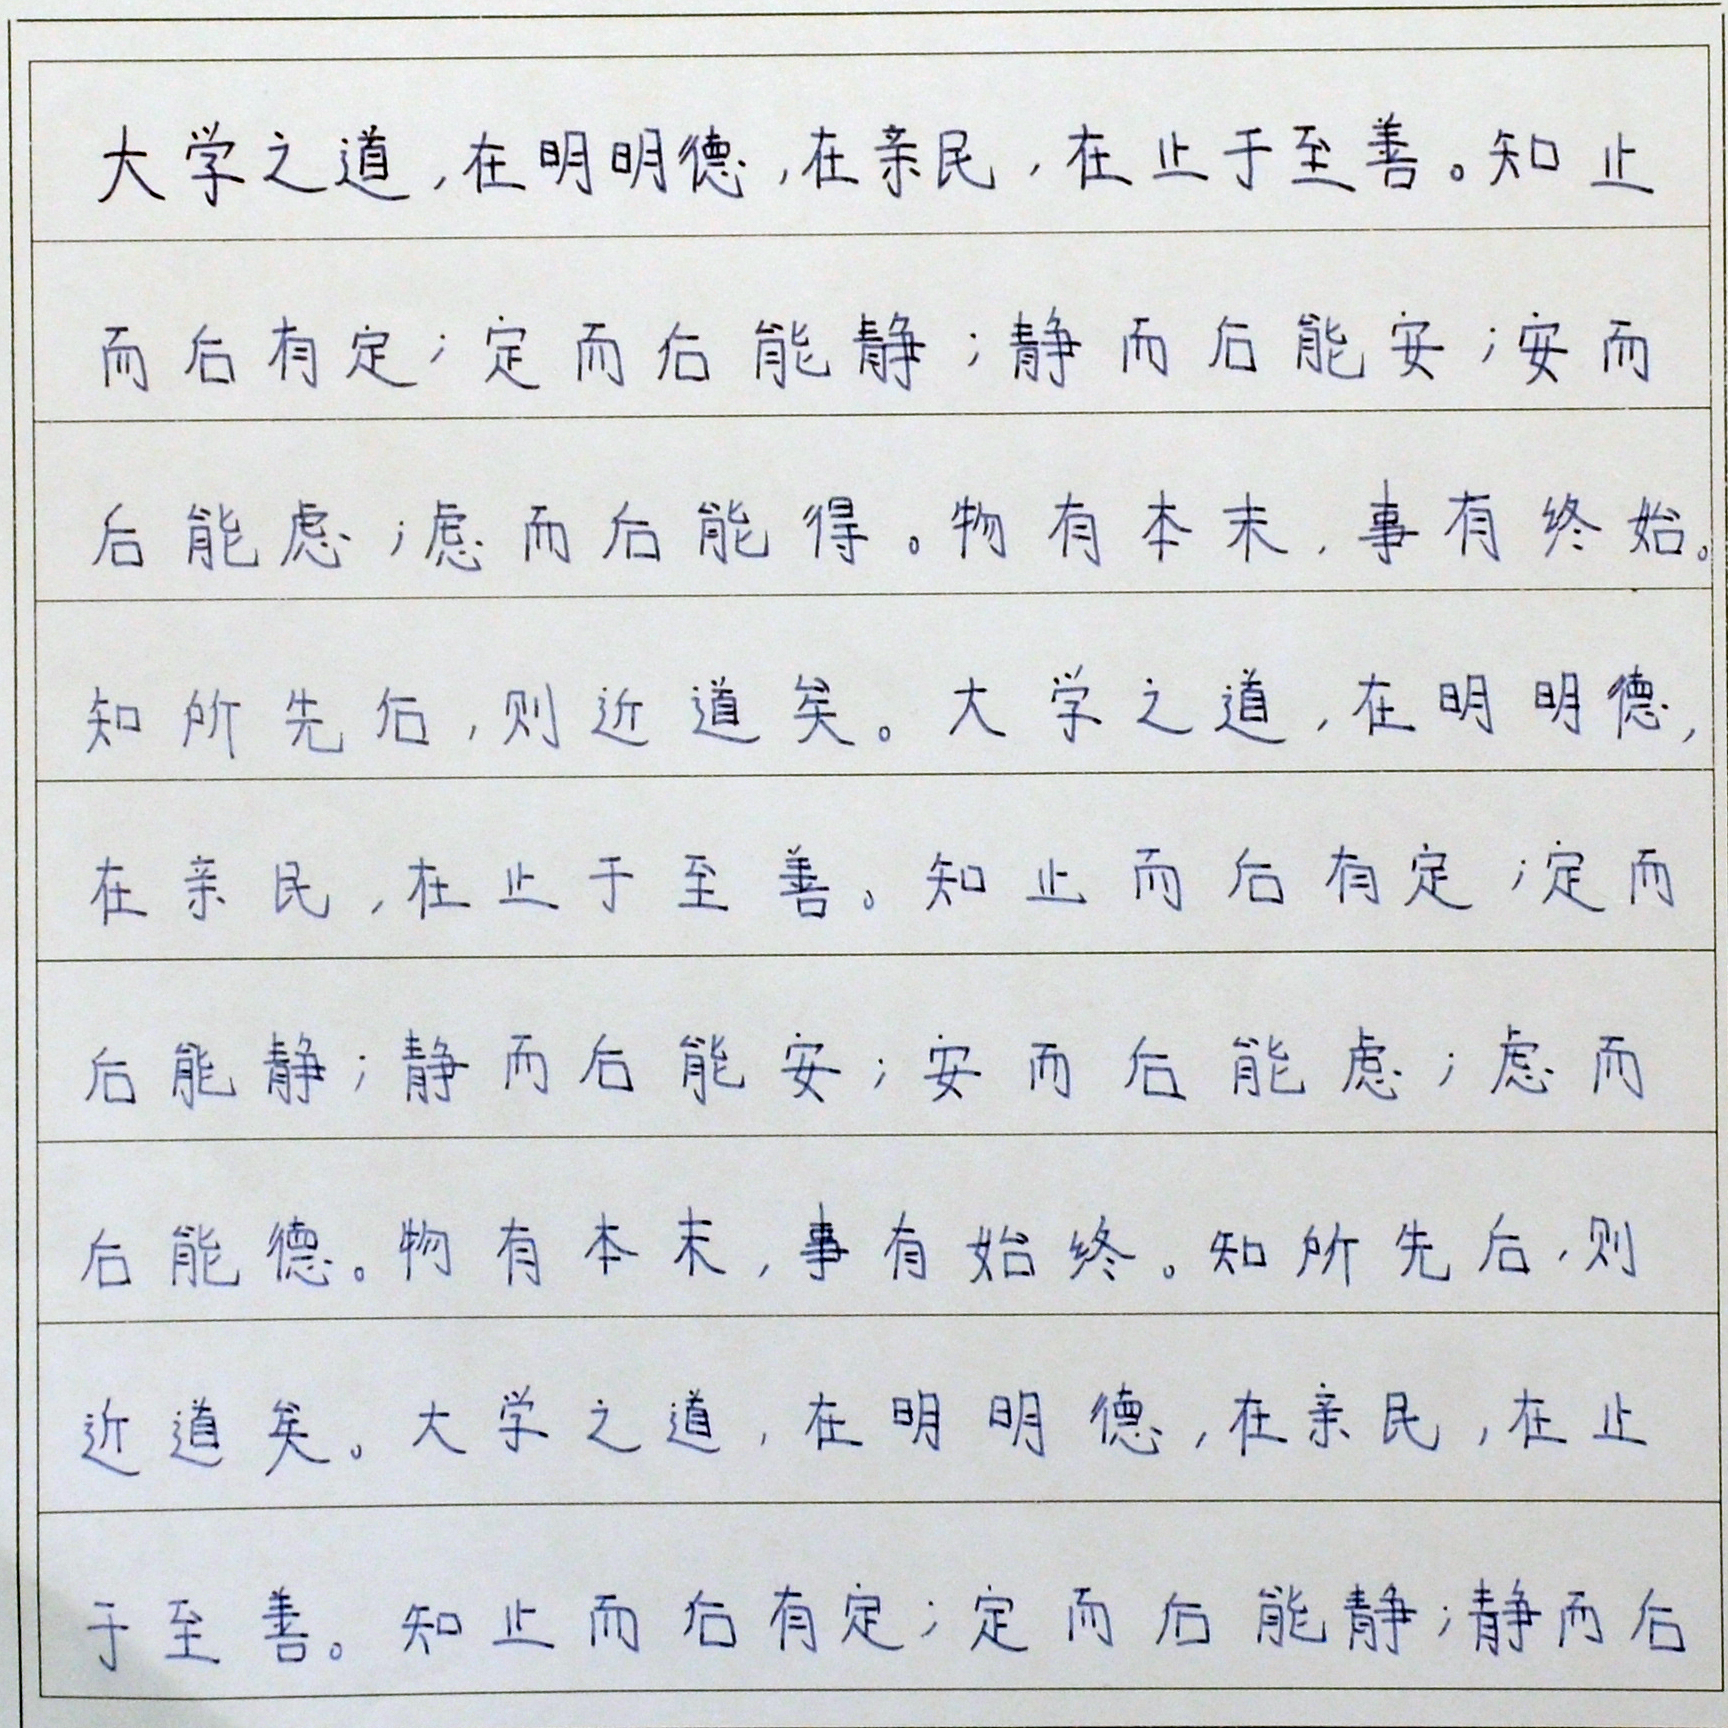 大学之道,在明明德,在亲民,在止于至善。知止
而后有定;定而后能静;静而后能安;安而
后能虑;虑而后能得。物有本末,事有终始。
知所先后,则近道矣。大学之道,在明明德,
在亲民,在止于至善。知止而后有定;定而
后能静;静而后能安;安而后能虑;虑而
后能德。物有本末,事有始终。知所先后,则
近道矣。大学之道,在明明德,在亲民,在止
于至善。知止而后有定;定而后能静;静而后